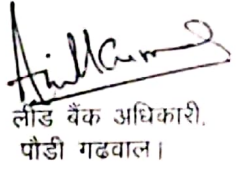 लीड बैंक अधिकारी,
पौडी गढवाल।